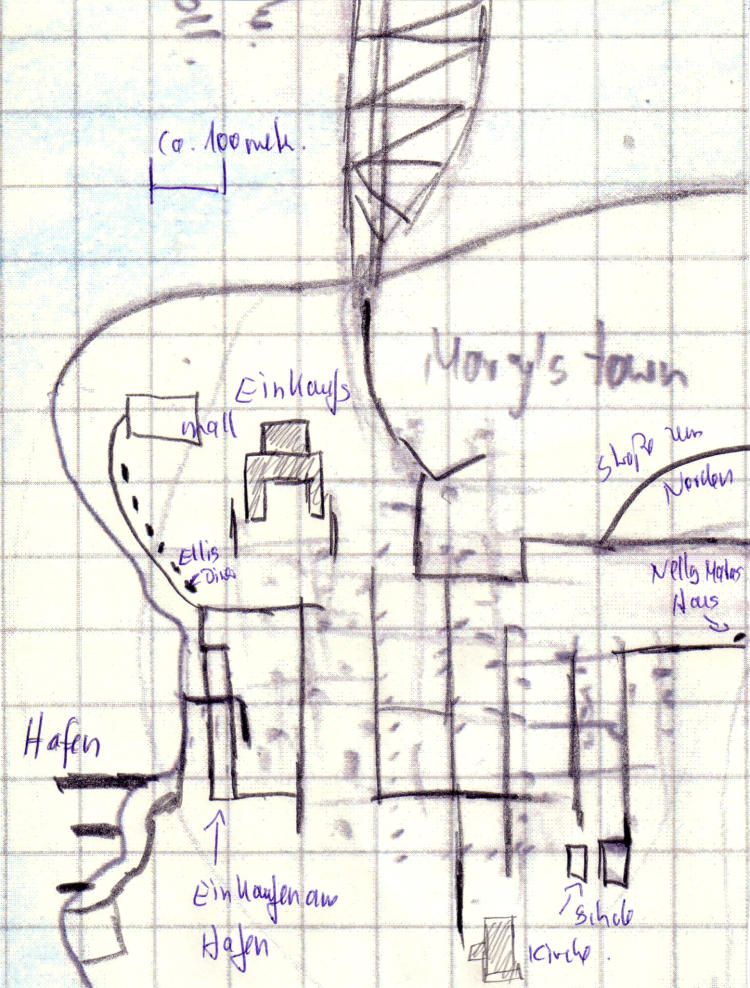 ca. 100 met.
Mary's town
Einkaufs
mall
Straße zum
Norden
Ellis
Diner
Haus
Hafen
Einkaufen am
Hafen
Schule
Kirche.